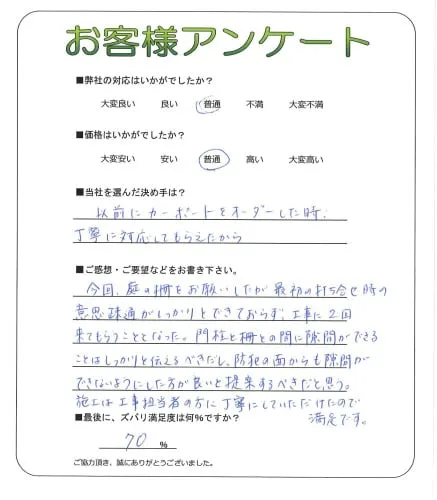 お客様アンケート
■弊社の対応はいかがでしたか？
大変良い 良い 普通 不満 大変不満
■価格はいかがでしたか？
大変安い 安い 普通 高い 大変高い
■当社を選んだ決め手は？
以前にカーポートをオーダーした時、
丁寧に対応してもらえたから
■ご感想・ご要望などをお書き下さい。
今回、庭の柵をお願いしたが最初の打ち合せ時の
意思疎通がしっかりとできておらず、工事に2回
来てもらうこととなった。門柱と柵との間に隙間ができる
ことはしっかりと伝えるべきだし、防犯の面からも隙間が
できないようにした方が良いと提案するべきだと思う。
施工は工事担当者の方に丁寧にしていただけたので
満足です。
■最後に、ズバリ満足度は何%ですか？
70 %
ご協力頂き、誠にありがとうございました。